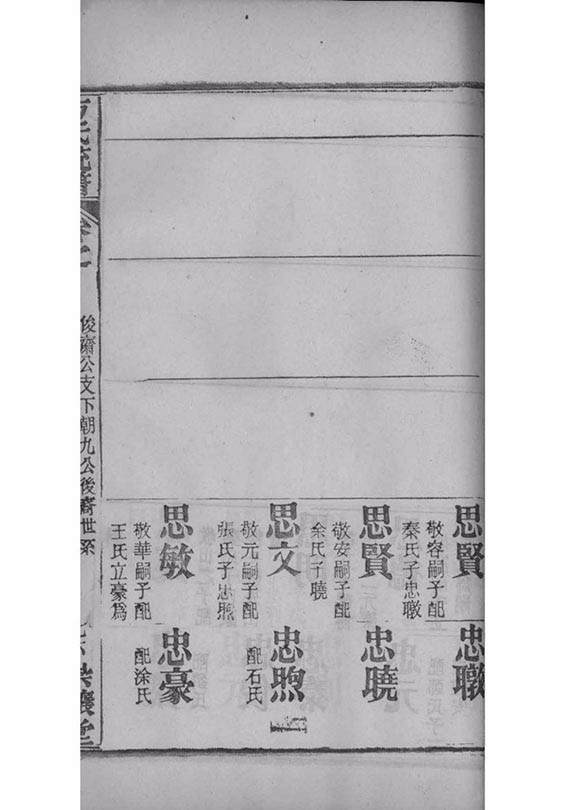 思賢
敬容嗣子配
秦氏子忠暾
忠暾
思賢
敬安嗣子配
余氏子曉
忠曉
思文
敬元嗣子配
張氏子忠煦
忠煦
配石氏
思敏
敬華嗣子配
王氏立豪爲
忠豪
配涂氏
俊齋公支下朝九公後裔世系